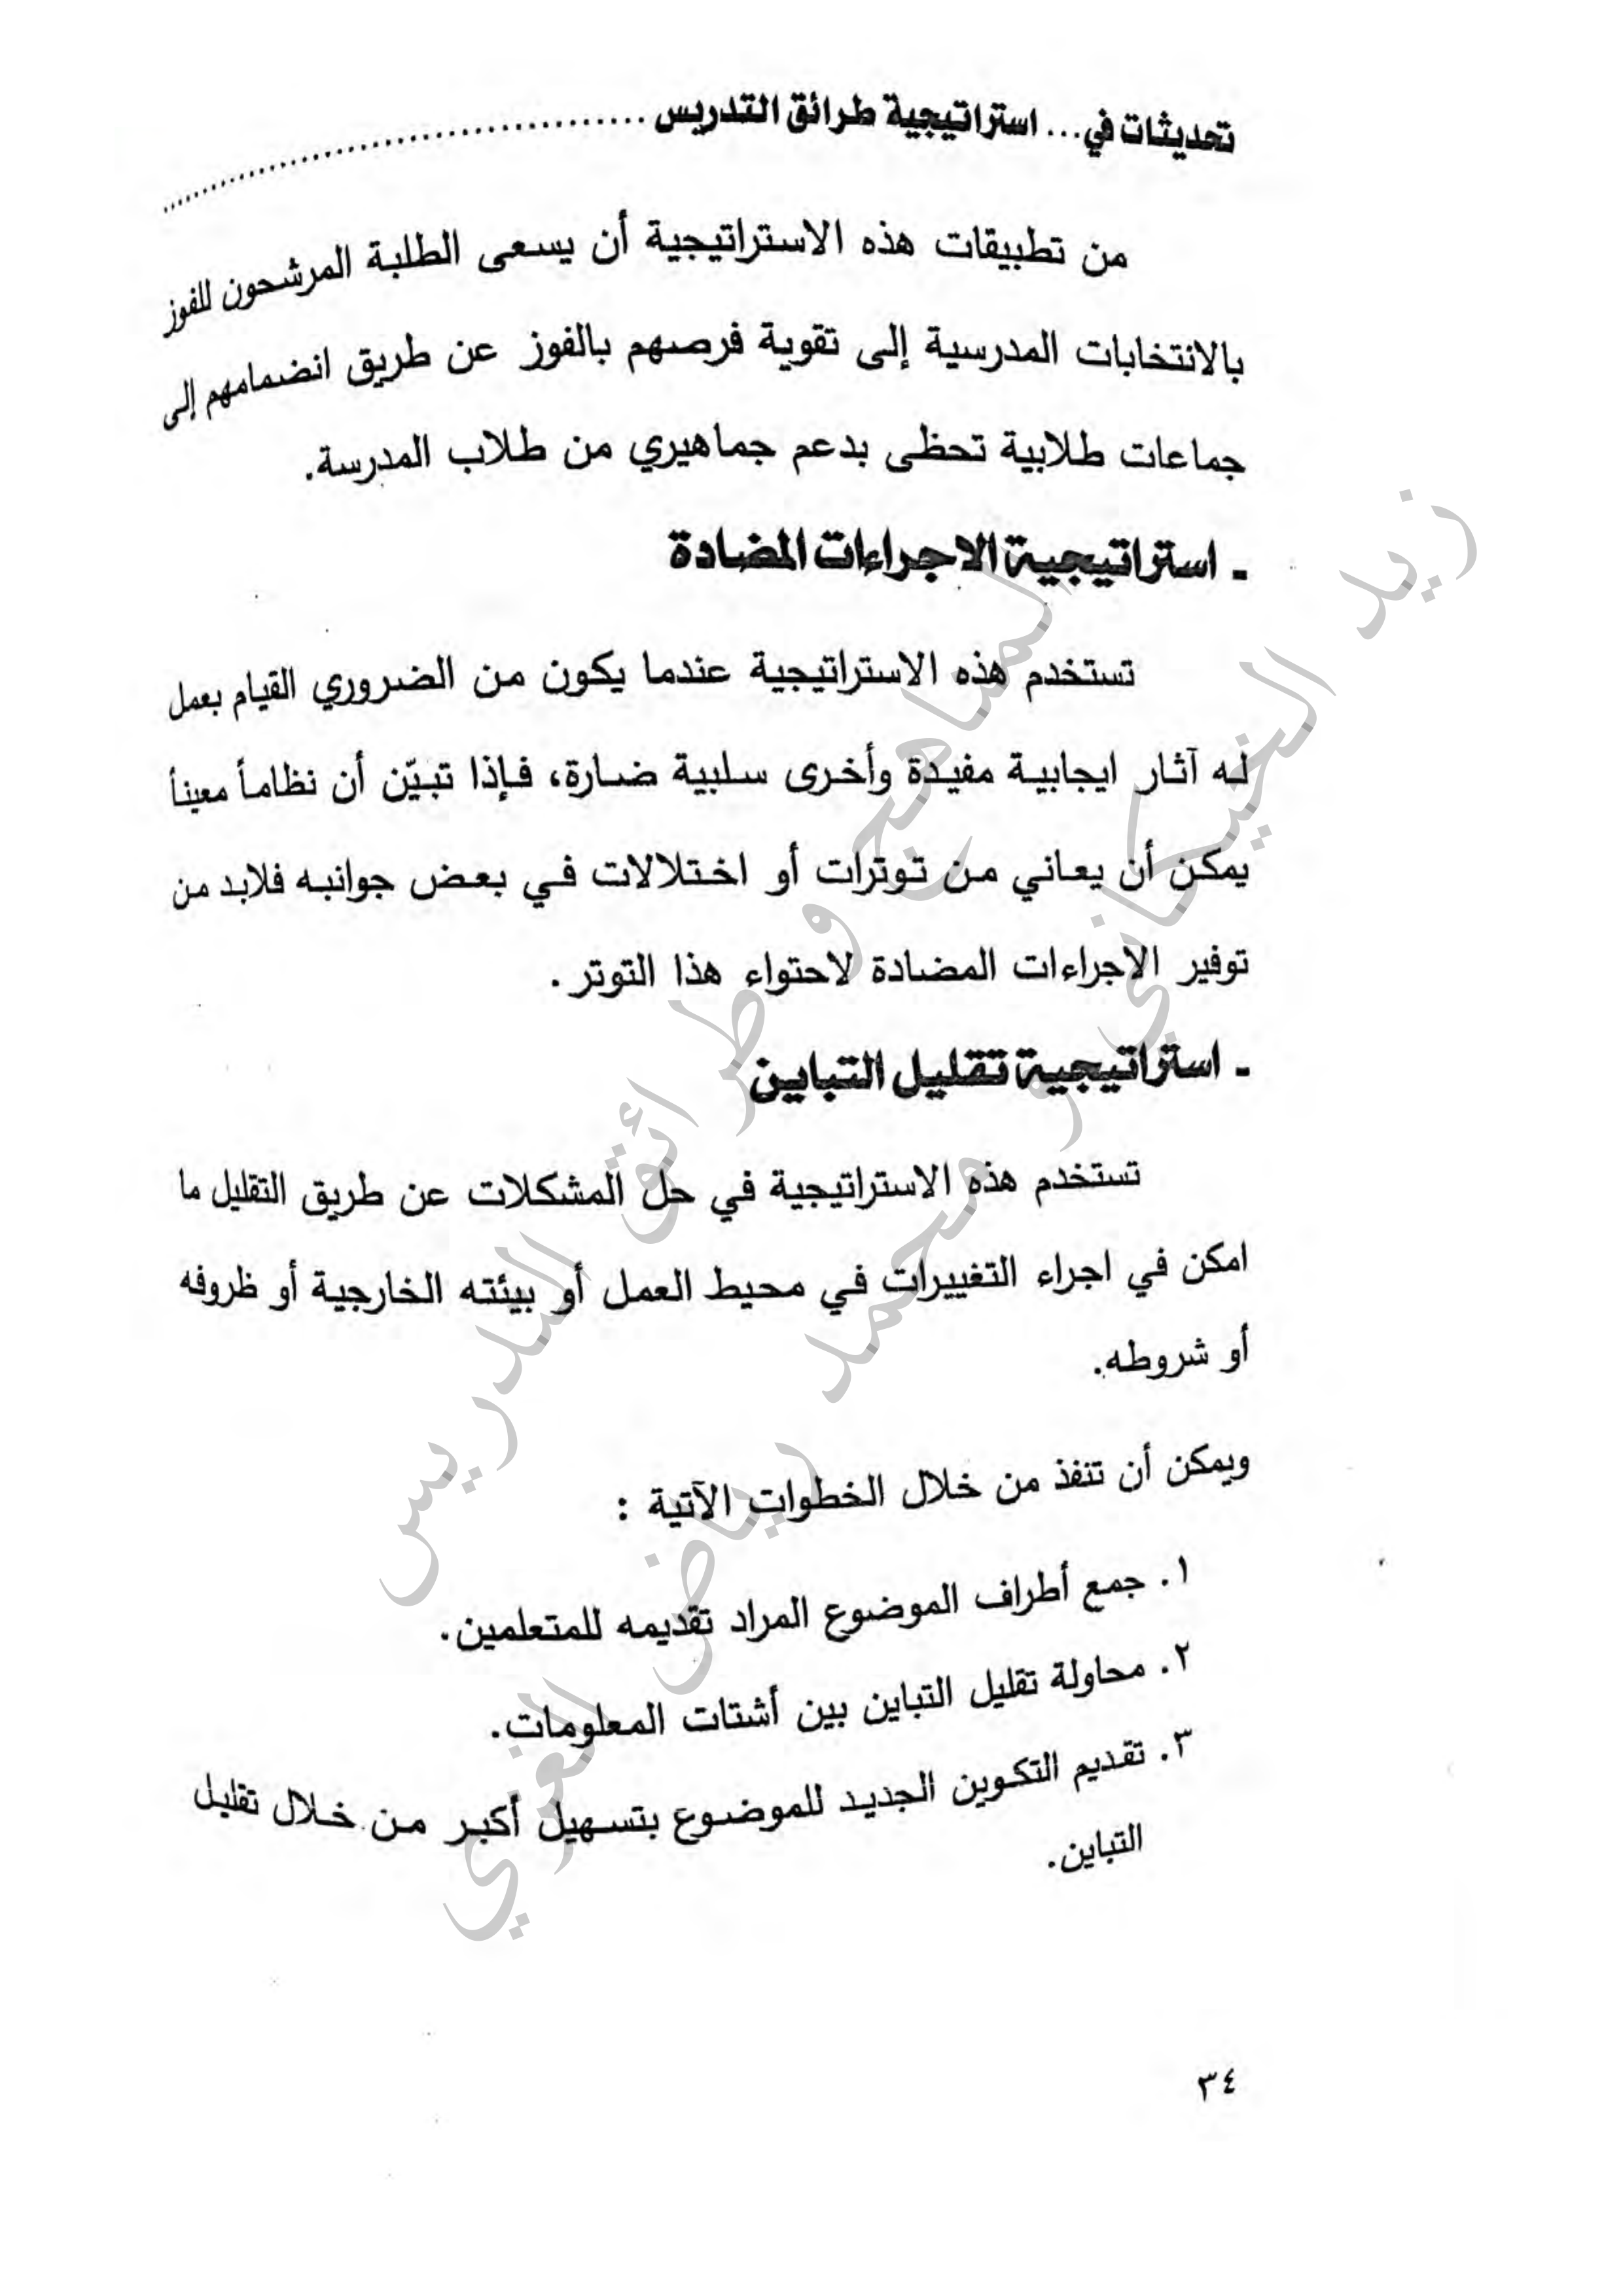 تحديثات في... استراتيجية طرائق التدريس ......................................
من تطبيقات هذه الاستراتيجية أن يسعى الطلبة المرشحون للفوز
بالانتخابات المدرسية إلى تقوية فرصهم بالفوز عن طريق انضمامهم إلى
جماعات طلابية تحظى بدعم جماهيري من طلاب المدرسة.
- استراتيجية الاجراءات المضادة
تستخدم هذه الاستراتيجية عندما يكون من الضروري القيام بعمل
له آثار ايجابية مفيدة وأخرى سلبية ضارة، فإذا تبيّن أن نظاماً معيناً
يمكن أن يعاني من توترات أو اختلالات في بعض جوانبه فلابد من
توفير الاجراءات المضادة لاحتواء هذا التوتر .
- استراتيجية تقليل التباين
تستخدم هذه الاستراتيجية في حل المشكلات عن طريق التقليل ما
امكن في اجراء التغييرات في محيط العمل أو بيئته الخارجية أو ظروفه
أو شروطه.
ويمكن أن تنفذ من خلال الخطوات الآتية :
١. جمع أطراف الموضوع المراد تقديمه للمتعلمين.
٢. محاولة تقليل التباين بين أشتات المعلومات.
٣. تقديم التكوين الجديد للموضوع بتسهيل أكبر من خلال تقليل
التباين.
٣٤
المناهج و طرائق التدريس
زيد الخيكاني و محمد رياض الغزي